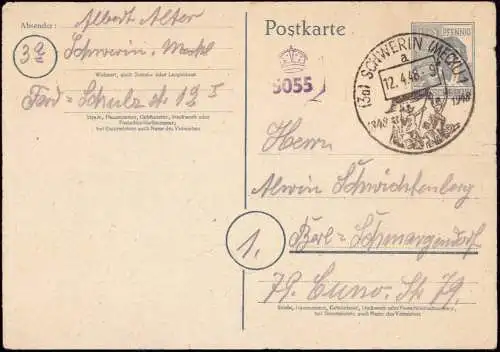 Absender: Albert Alter
3a Schwerin, Meckl
Wohnort, auch Zustell- oder Leitpostamt
Ferd=Schulz st. 12 I
Straße, Hausnummer, Gebäudeteil, Stockwerk oder
Postschließfachnummer,
bei Untermietern auch Name des Vermieters
Postkarte
5055
PFENNIG
(3a) SCHWERIN (MECKL) 1
a
12.4.48.-9
1848
1948
Herrn
Alwin Schwichtenberg
1.
Berl=Schmargendorf
79. Cuno. Str 79.
Straße, Hausnummer, Gebäudeteil, Stockwerk oder Postschließfachnummer,
bei Untermietern auch Name des Vermieters